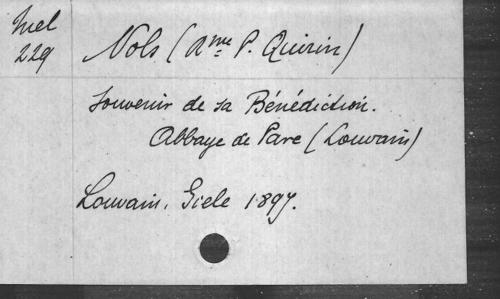 Mel
229
Nols (Ame P. Quirin)
Souvenir de sa Bénédiction.
Abbaye de Parc (Louvain)
Louvain, Giele 1897.